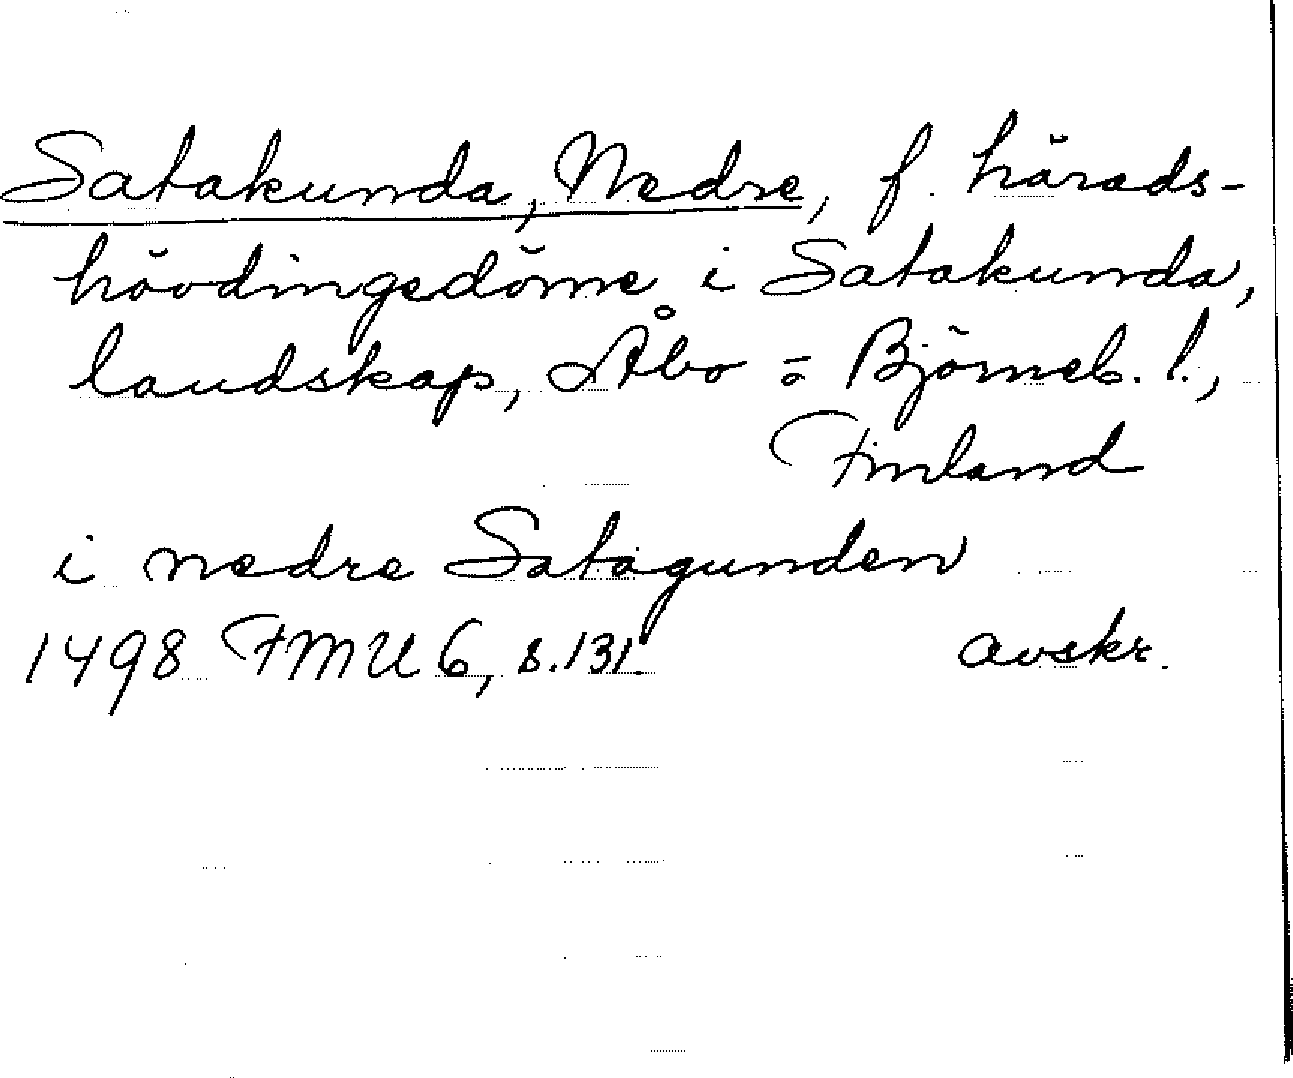 Satakunda, Nedre, f. härads-
hövdingedöme i Satakunda,
landskap, Åbo = Björneb. l.,
Finland
i nedre Satagunden
1498 FMU 6, s. 131 avskr.